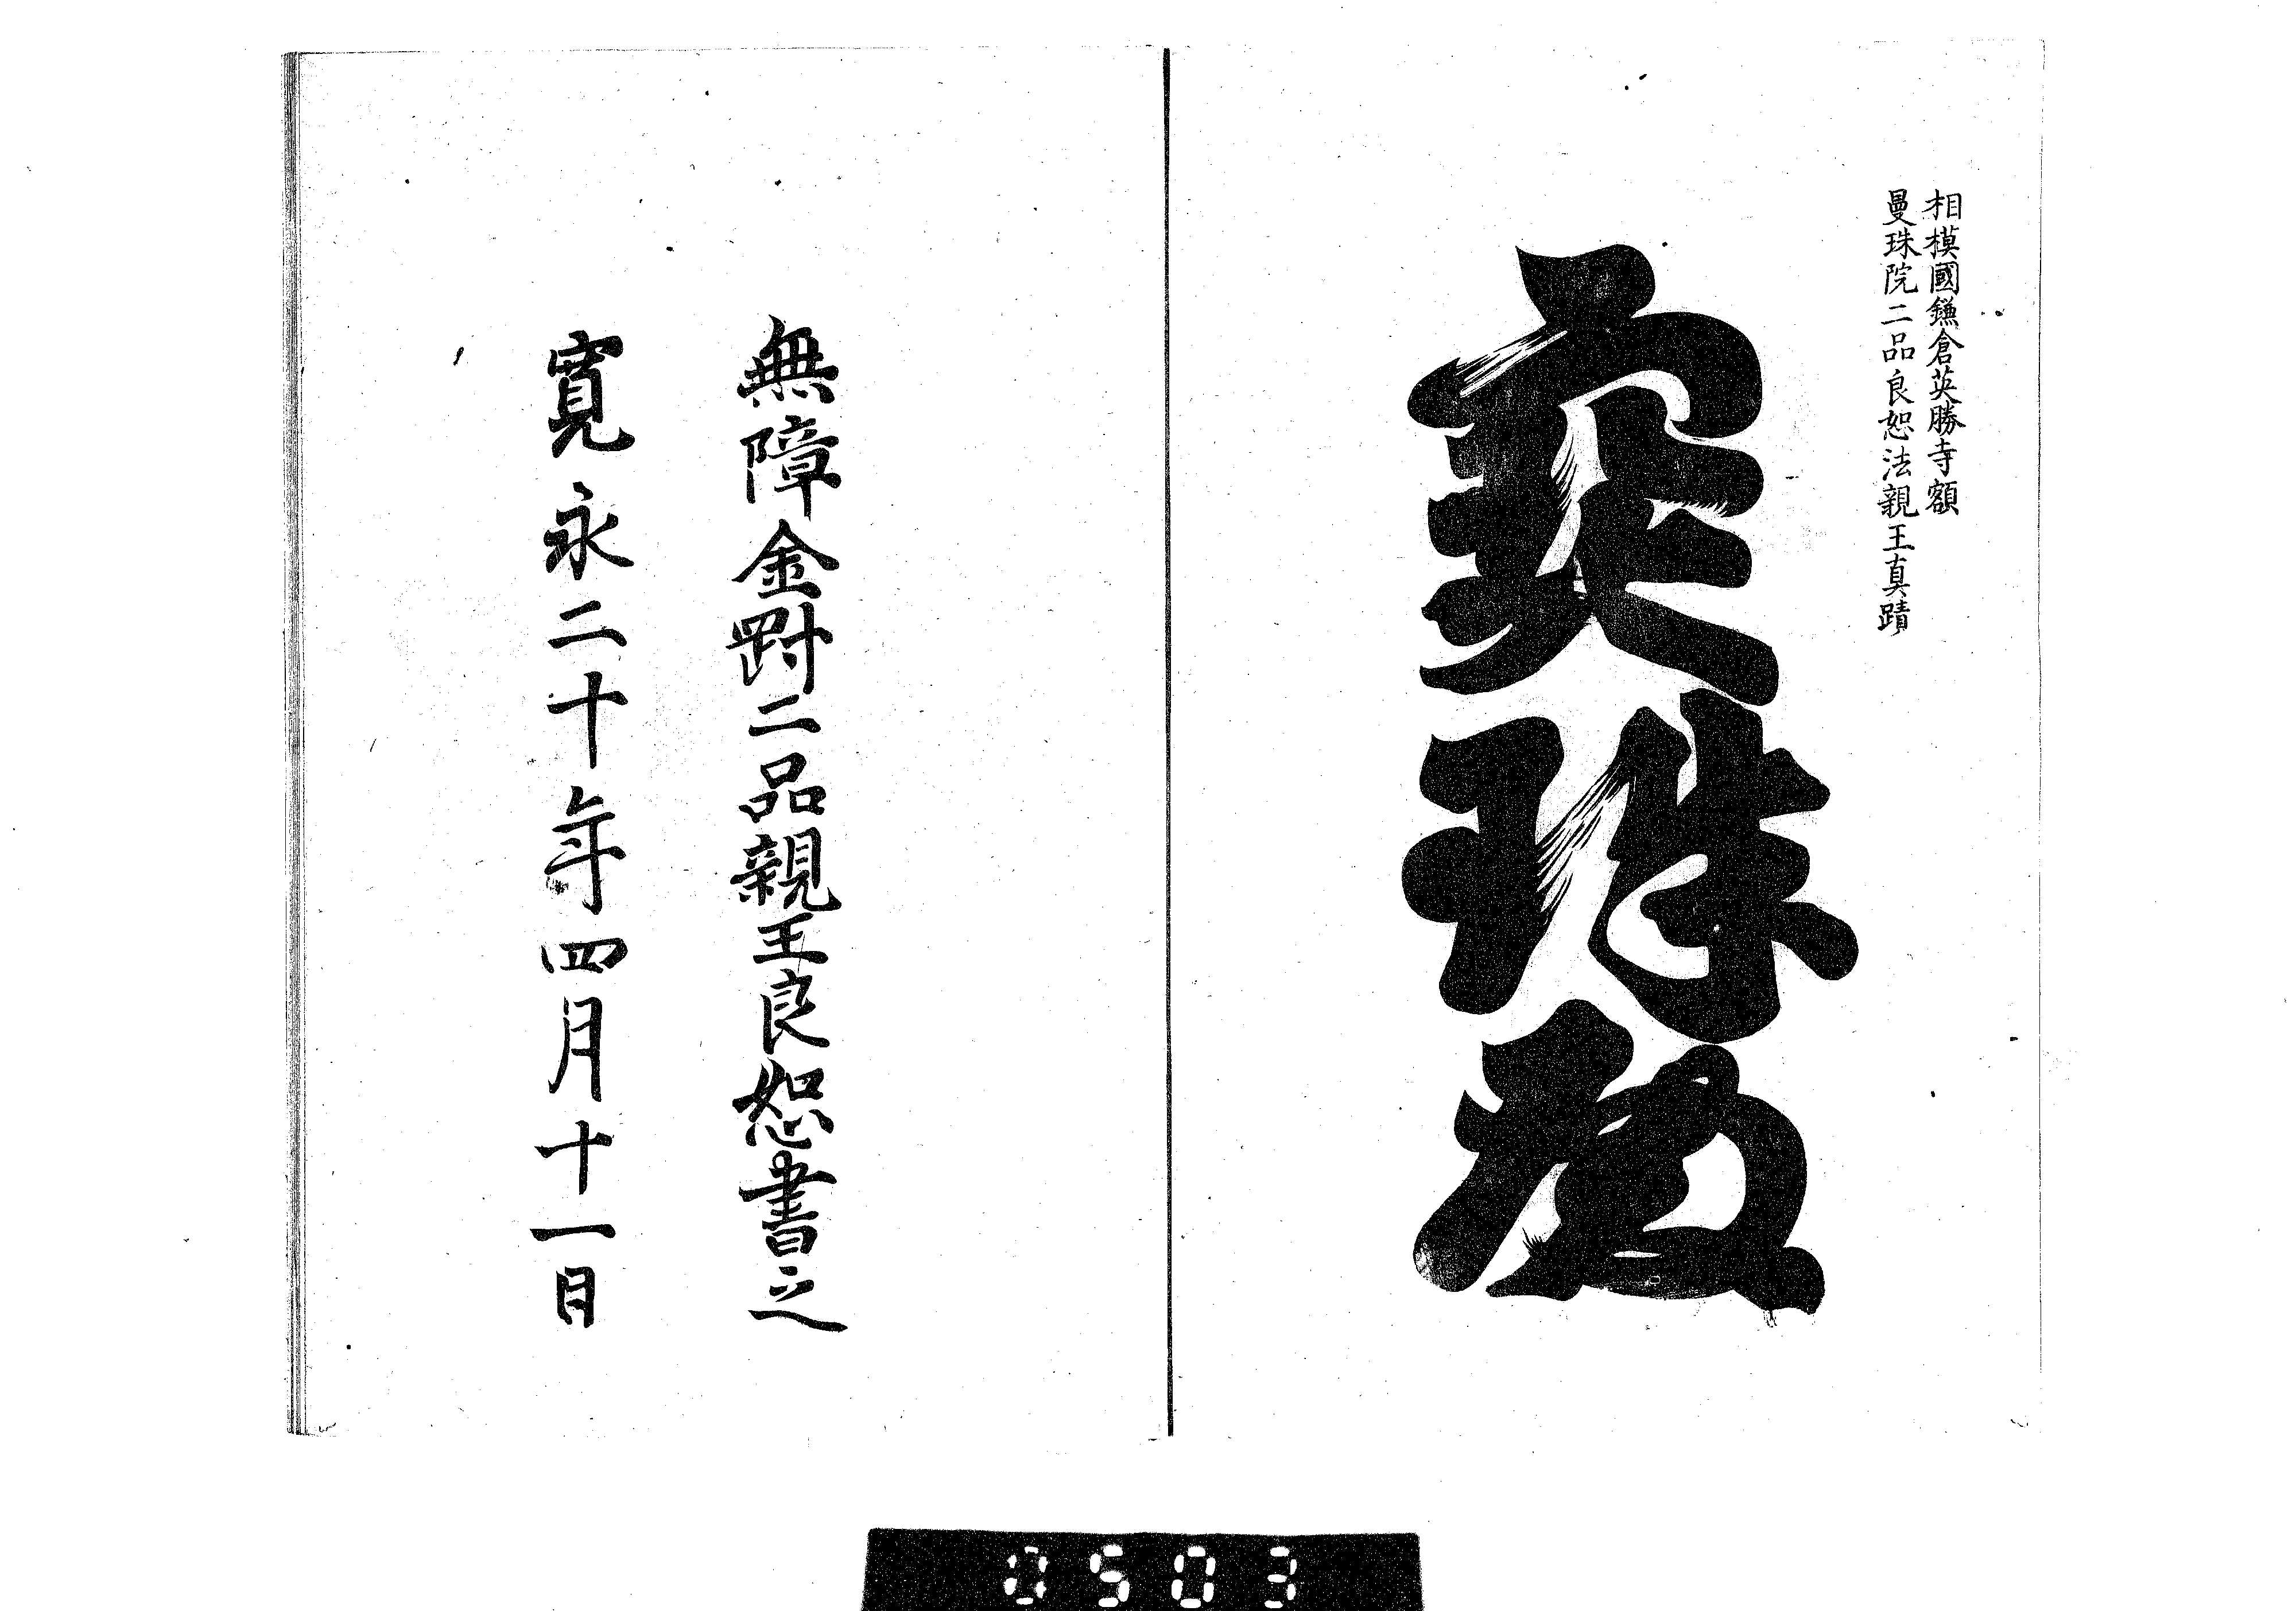 相模國鎌倉英勝寺額
曼珠院二品良恕法親王真蹟
寳珠殿
無障金剛二品親王良恕書之
寛永二十年四月十一日
0503